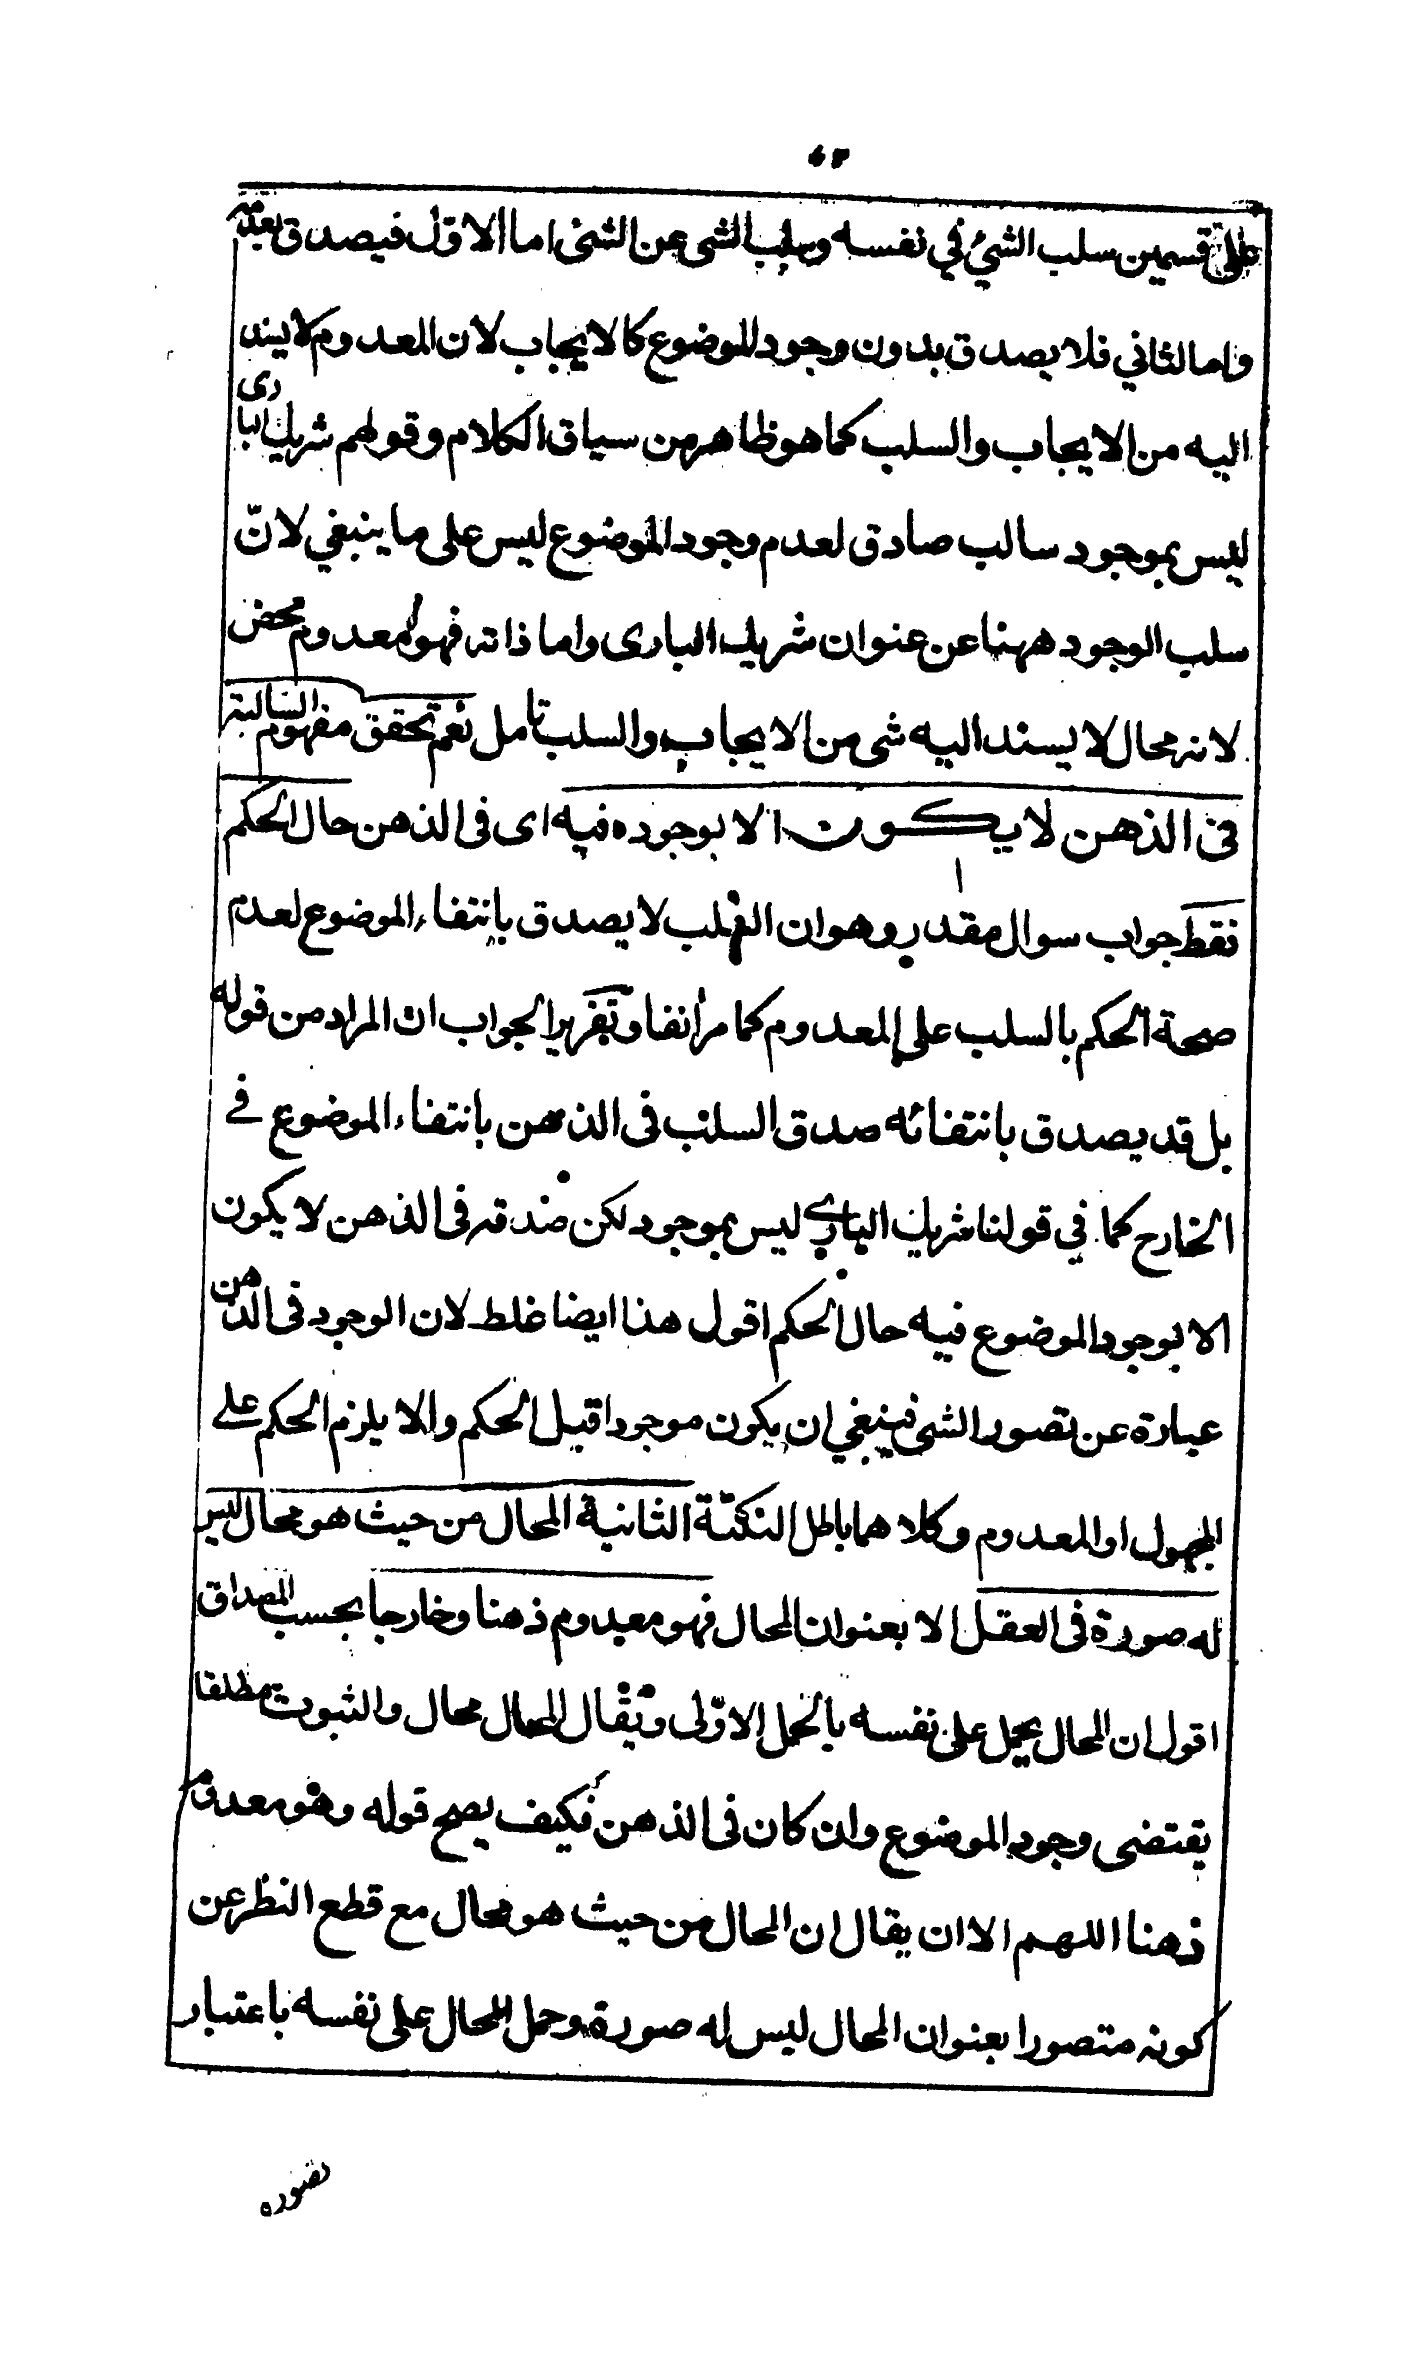 ٤٣
على قسمين سلب الشئ في نفسه وسلب الشى عن الشى اما الاول فيصدق بعدمه
واما الثاني فلا يصدق بدون وجود الموضوع كالايجاب لان المعدوم لا يسند
اليه من الايجاب والسلب كما هو ظاهر من سياق الكلام وقولهم شريك البارى
ليس بموجود سالب صادق لعدم وجود الموضوع ليس على ما ينبغي لانّ
سلب الوجود ههنا عن عنوان شريك البارى واما ذاته فهو معدوم محض
لانه محال لا يسند اليه شى من الايجاب والسلب تامل نعم تحقق مفهوم السالبة
في الذهن لا يكون الا بوجوده فيه اى فى الذهن حال الحكم
فقط جواب سوال مقدر وهو ان السلب لا يصدق بانتفاء الموضوع لعدم
صحة الحكم بالسلب على المعدوم كما مر أنفا وتقرير الجواب ان المراد من قوله
بل قد يصدق بانتفائه صدق السلب فى الذهن بانتفاء الموضوع في
الخارج كما في قولنا شريك الباري ليس بموجود لكن صدقه فى الذهن لا يكون
الا بوجود الموضوع فيه حال الحكم اقول هذا ايضا غلط لان الوجود فى الذهن
عبارة عن تصور الشى فينبغي ان يكون موجودا قبل الحكم والا يلزم الحكم على
المجهول او المعدوم وكلاهما باطل النكتة الثانية المحال من حيث هو محال ليس
له صورة فى العقل الا بعنوان المحال فهو معدوم ذهنا وخارجا بحسب المصداق
اقول ان المحال يحمل على نفسه بالحمل الاوّلى ويقال المحال محال والثبوت مطلقا
يقتضى وجود الموضوع وان كان فى الذهن فكيف يصح قوله وهو معدوم
ذهنا اللهم الا ان يقال ان المحال من حيث هو محال مع قطع النظر عن
كونه متصورا بعنوان المحال ليس له صورة وحمل المحال على نفسه باعتبار
تصوره